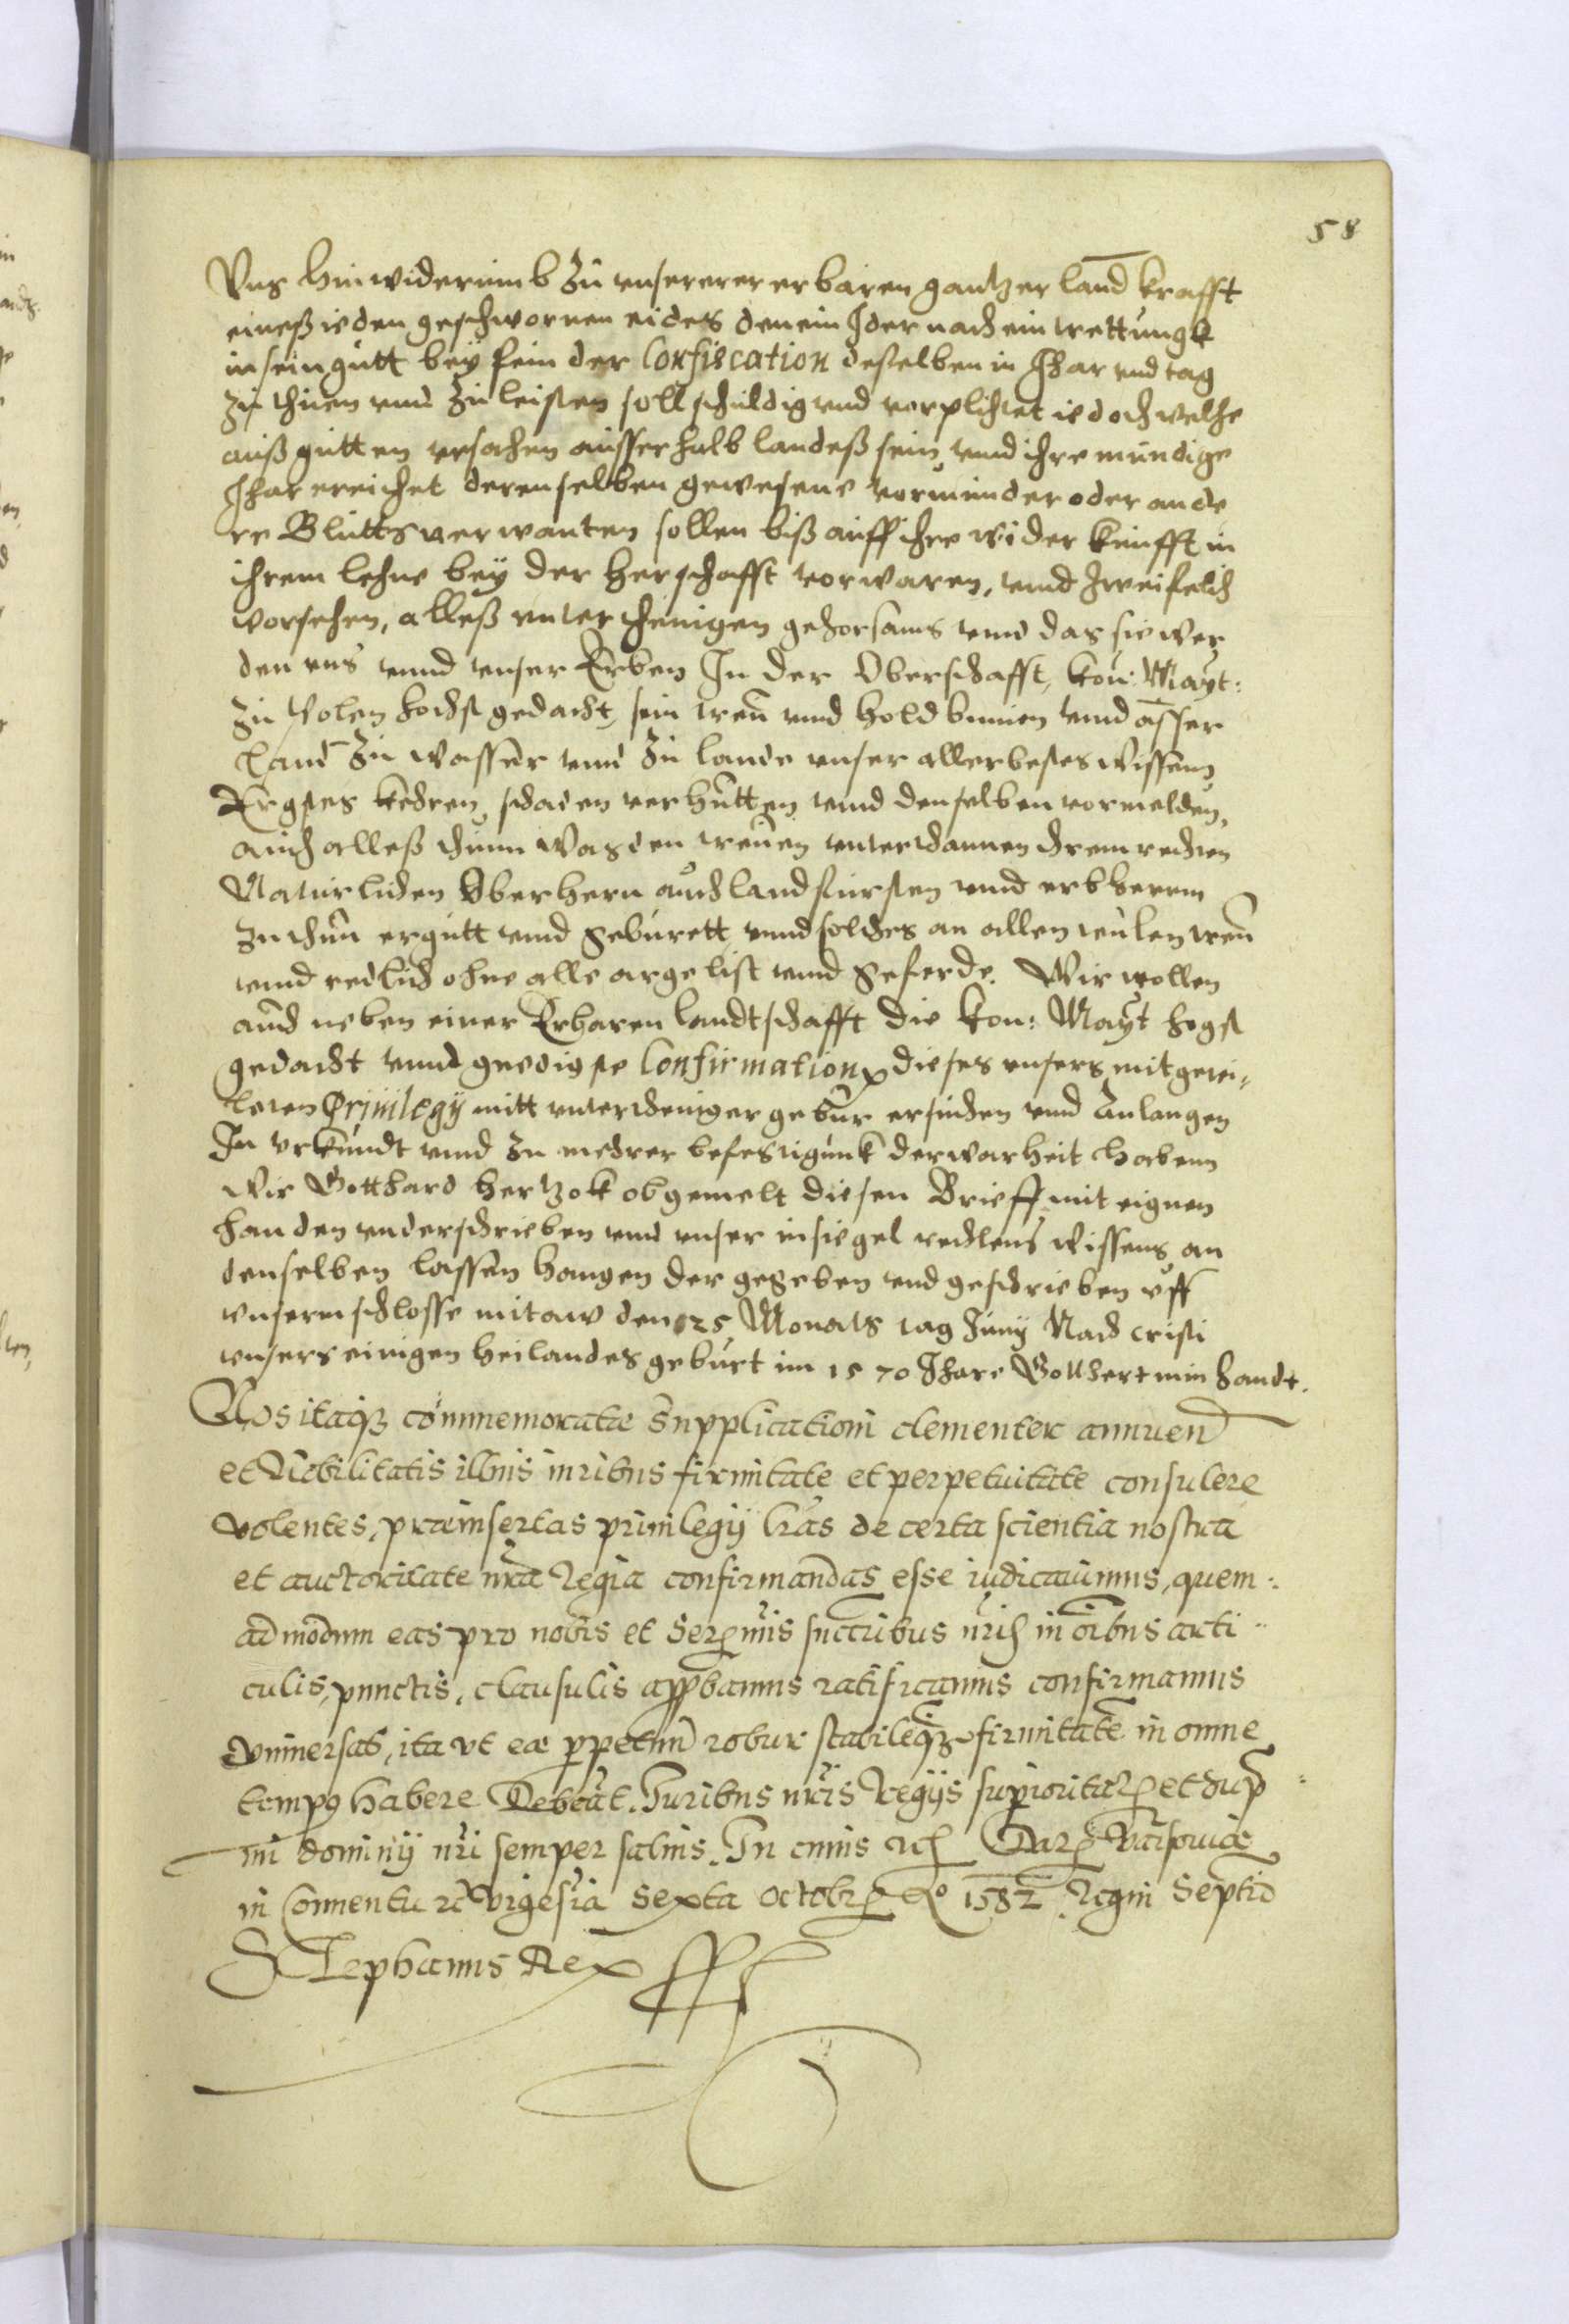 58
Vns hinwiderumb zu unsererer erbaren gantzer land krafft
eineß ieden geschwornen eides den ein Jder nach eintrettungk
in sein gutt bey fein der Confiscation deselben in Jhar vnd tag
zu thuen vnnd zu leisten soll schuldig vnd verplichtet iedoch welche
auß gutten vrsachen ausserhalb landeß sein, vnnd ihre mundige
Jhar ereichet derenselben gewesene vormunder oder ande
re Blutts verwanten sollen biß auff ihre widerkunfft in
ihrem lehne bey der herschafft vorwaren, vnnd
vorsehen, alleß vnterthenigen gehorsams vnnd das sie wer
den vns vnnd vnser Erben In der Oberschafft, kon: Mayt:
zu Polen hochst gedacht, sein treu vnnd hold vnnd
land zu wasser vnnd zu lande vnser allerbestes wissenn
Ergstes kehren, schaden verhutten vnnd denselben vormelden,
auch alleß thunn was den treuen vnterthannen ihrem rechten
Naturlichen Oberhern auch landsfursten vnnd erbherrn
zu thun ergutt vnnd geburett, vnnd solches an allen treu
vnnd redlich ohne alle argelist vnnd geferde. Wir wollen
auch neben einer Erbaren landtschafft die kon: Mayt hogst
gedacht vmb gnedigste Confirmation dieses vnsers mitgetei-
leten Priuilegy mitt vnterdeniger gebur ersuchen vnnd anlangen
In vrkundt vnnd zu mehrer befestigunk der warheit habenn
wir Gotthard hertzok obgemelt diesen Brieff mit eignen
handen vnderschrieben vnnd vnser insiegel rechtens wissens an
denselben lassen hangen der gegeben vnd geschrieben vff
vnserm schlosse mitaw den 25 Monats tag Juny Nach cristi
vnsers einigen heilandes geburt im 1570 Jhare Gotthert min handt.
Nos itaq3 commemoratæ supplicationi clementer annuen
et Nobilitatis illius iuribus firmitate et perpetuitate consulere
volentes, præinsertas priuilegij lras de certa scientia nostra
et auctoritate nra Regia confirmandas esse iudicauimus, quem:
admodum eas pro nobis et Serenmis succribus nris in oibus arti
culis, punctis, clausulis appbamus ratificamus confirmamus
vniuersas, ita vt eæ ppetuu robur stabileq3 firmitatem in omne
tempus habere Debeat. Iuribus nris Regijs superioritat et sup
mi dominij nri semper saluis. In cuius rei Dat Varsouiæ
in Conuentu r vigesia sexta octobr Ao 1582 Regni Septi
Stephanus Rex